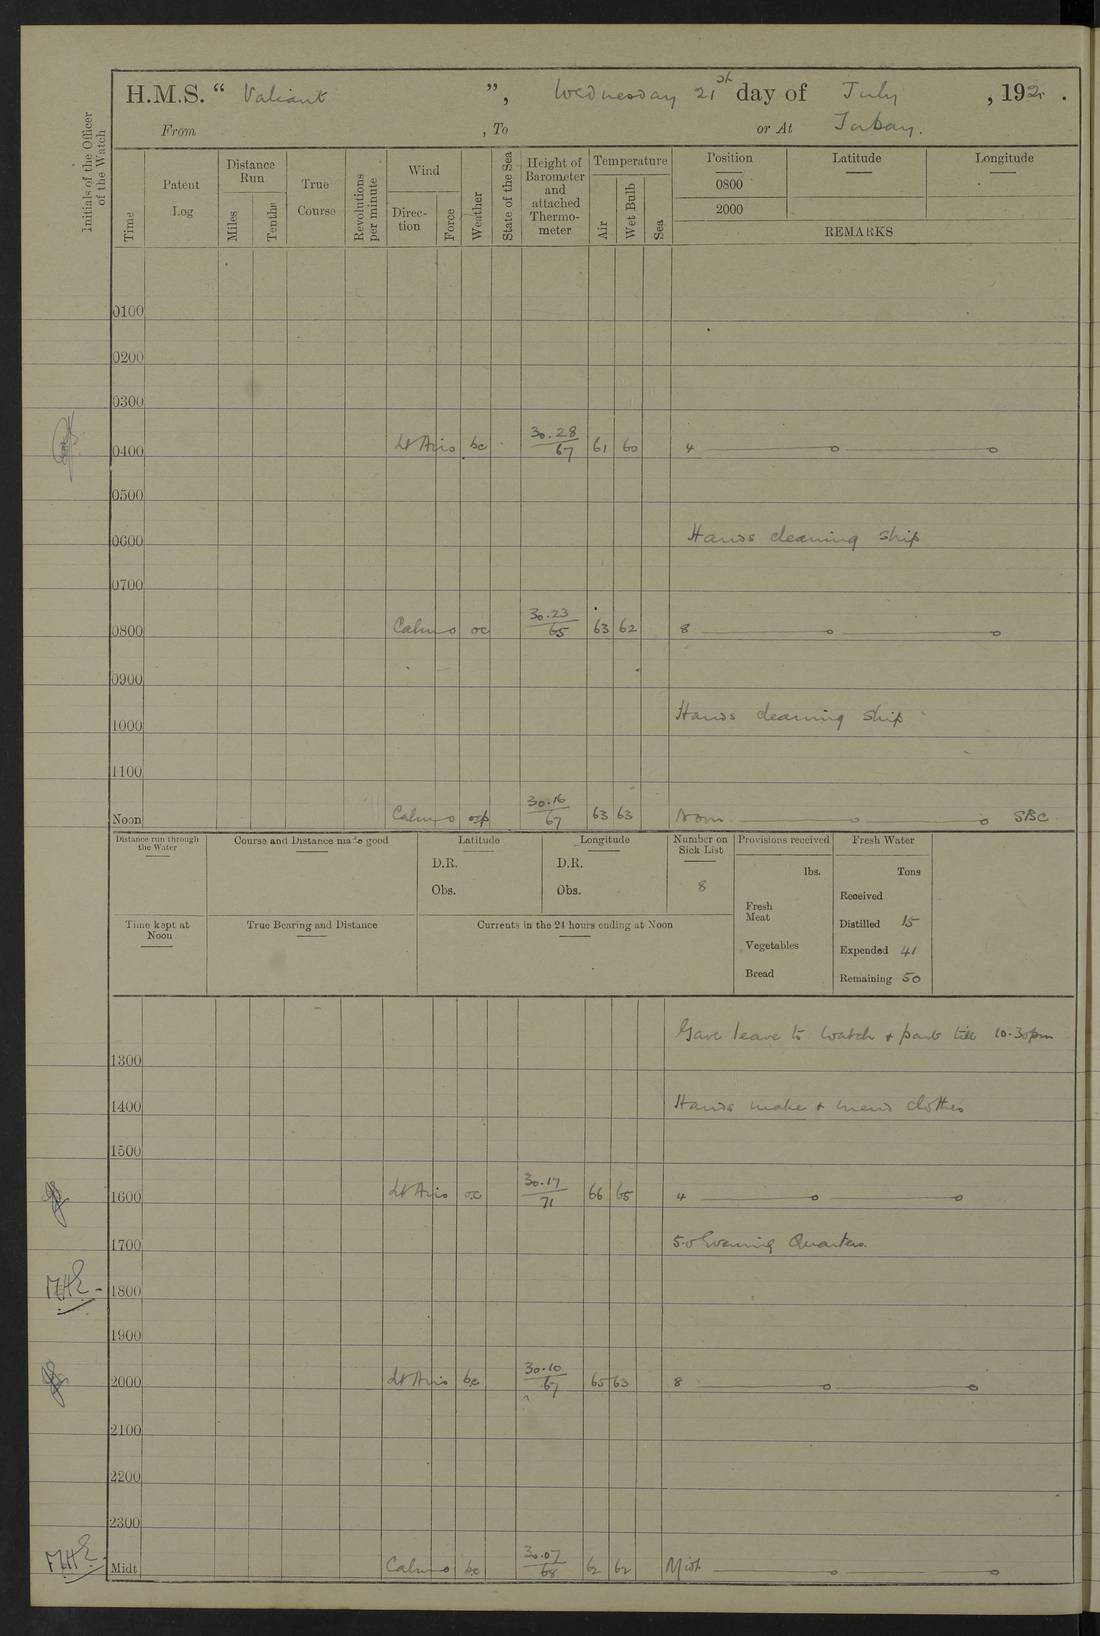 H.M.S. “ Valiant ”, Wednesday 21st day of July , 192 .
From , To or At Torbay.
Initials of the Officer of the Watch
Time
Patent Log
Distance Run
Miles
Tenths
True Course
Revolutions per minute
Wind
Direction
Force
Weather
State of the Sea
Height of Barometer and attached Thermometer
Temperature
Air
Wet Bulb
Sea
Position Latitude Longitude
0800
2000
REMARKS
0100
0200
0300
0400 Lt Airs bc 30.28/67 61 60 4
0500
0600 Hands cleaning ship
0700
0800 Calm 0 oc 30.23/65 63 62 8
0900
1000 Hands cleaning ship
1100
Noon Calm 0 30.16/67 63 63 Noon SBC
Distance run through the Water
Course and Distance made good
Latitude
D.R.
Obs.
Longitude
D.R.
Obs.
Number on Sick List
8
Provisions received
lbs.
Fresh Meat
Vegetables
Bread
Fresh Water
Tons
Received
Distilled 15
Expended 41
Remaining 50
Time kept at Noon
True Bearing and Distance
Currents in the 24 hours ending at Noon
Gave leave to watch & part till 10.30pm
1300
1400 Hands make & mend clothes
1500
1600 Lt Airs oc 30.17/71 66 65 4
1700 5.0 Evening Quarters
1800
1900
2000 Lt Airs bc 30.10/67 65 63 8
2100
2200
2300
Midt Calm 0 bc 30.07/68 62 62 Midt